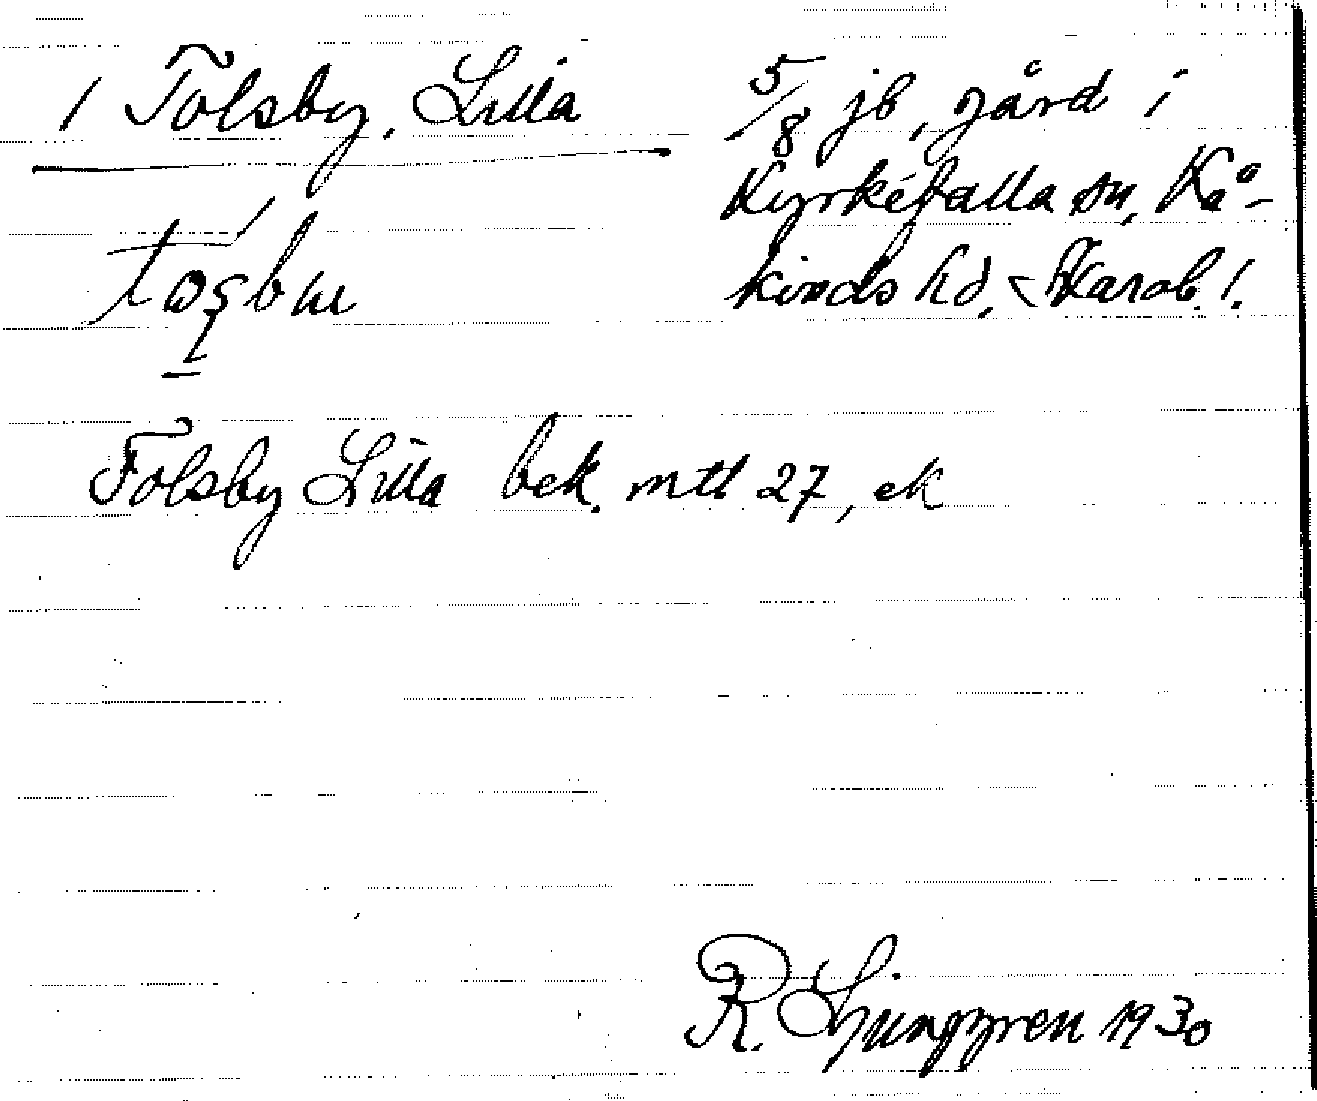 1 Tolsby, Lilla
5/8 jb, gård i
Kyrkefalla sn, Kå-
kinds hd, Skarab. l.
Tolsby Lilla bek. mtl 27, ek
R. Ljunggren 1930